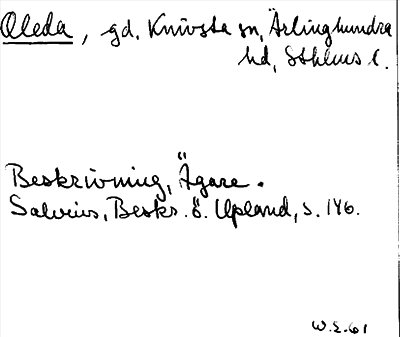 Oleda, gd, Knivsta sn, Ärlinghundra
hd, Sthlms l.
Beskrivning, Ägare.
Salvius, Beskr. ö. Upland, s. 146.
W.E.61